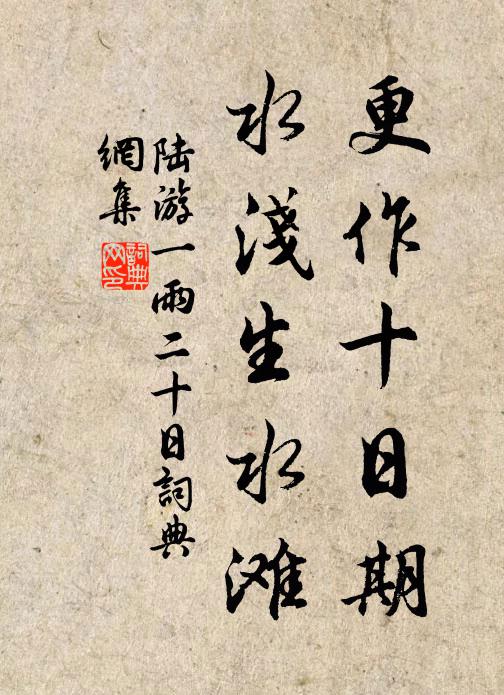 更作十日期
水淺生水滩
陆游一雨二十日詞典
網集
詞典
网印